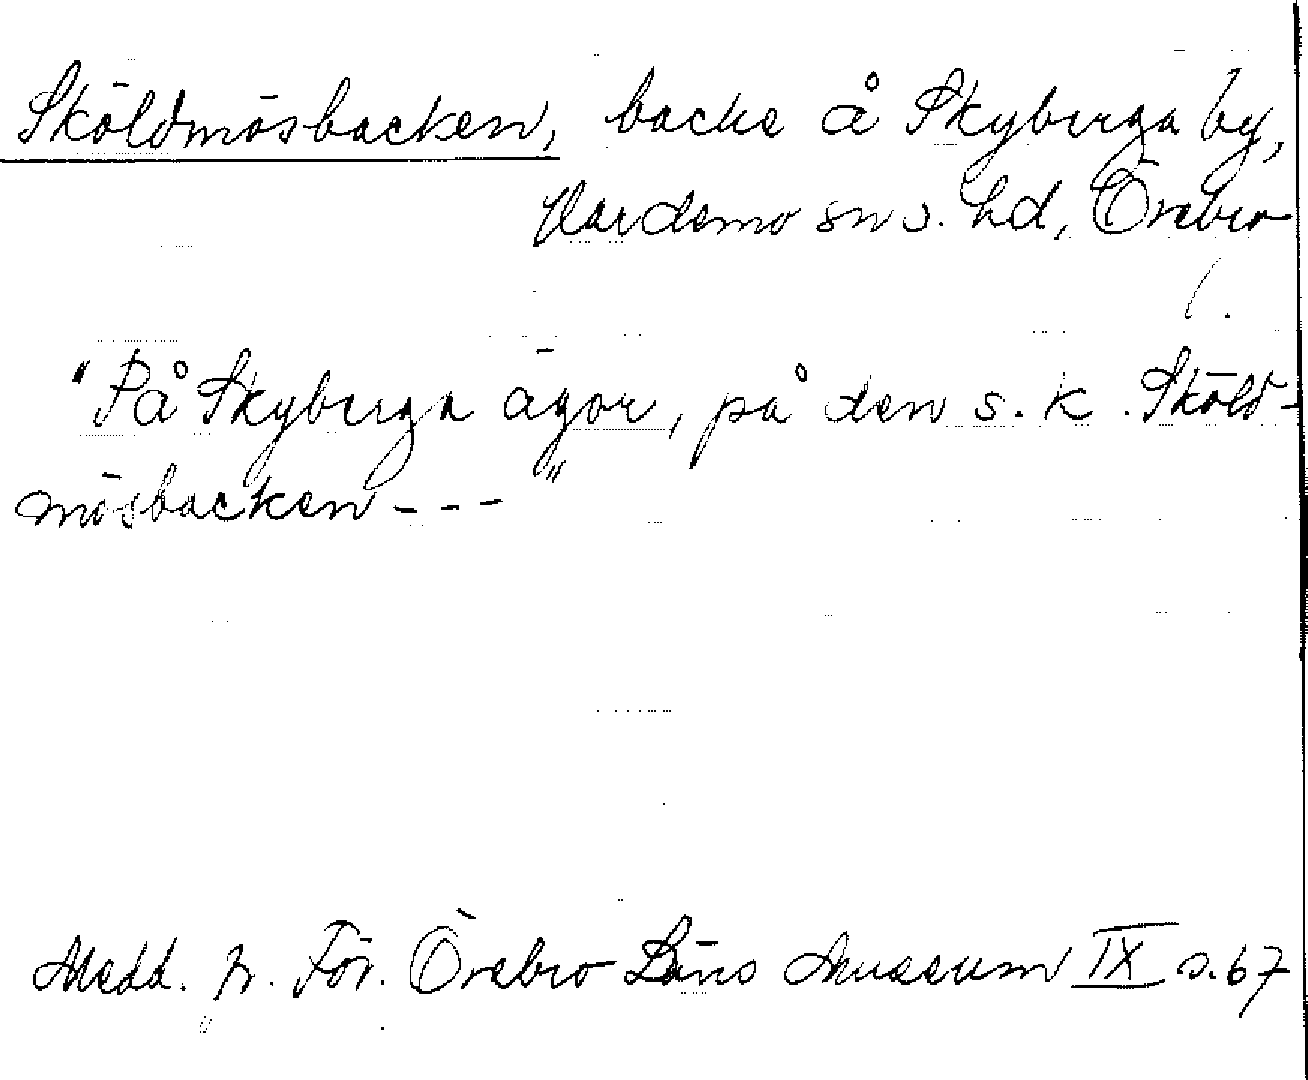 Sköldmösbacken, backe å Skyberga by,
Hardemo sn o. hd, Örebro
l.
"På Skyberga ägor, på den s.k. Sköld-
mösbacken - - - "
Medd. fr. För. Örebro Läns Museum IX s. 67